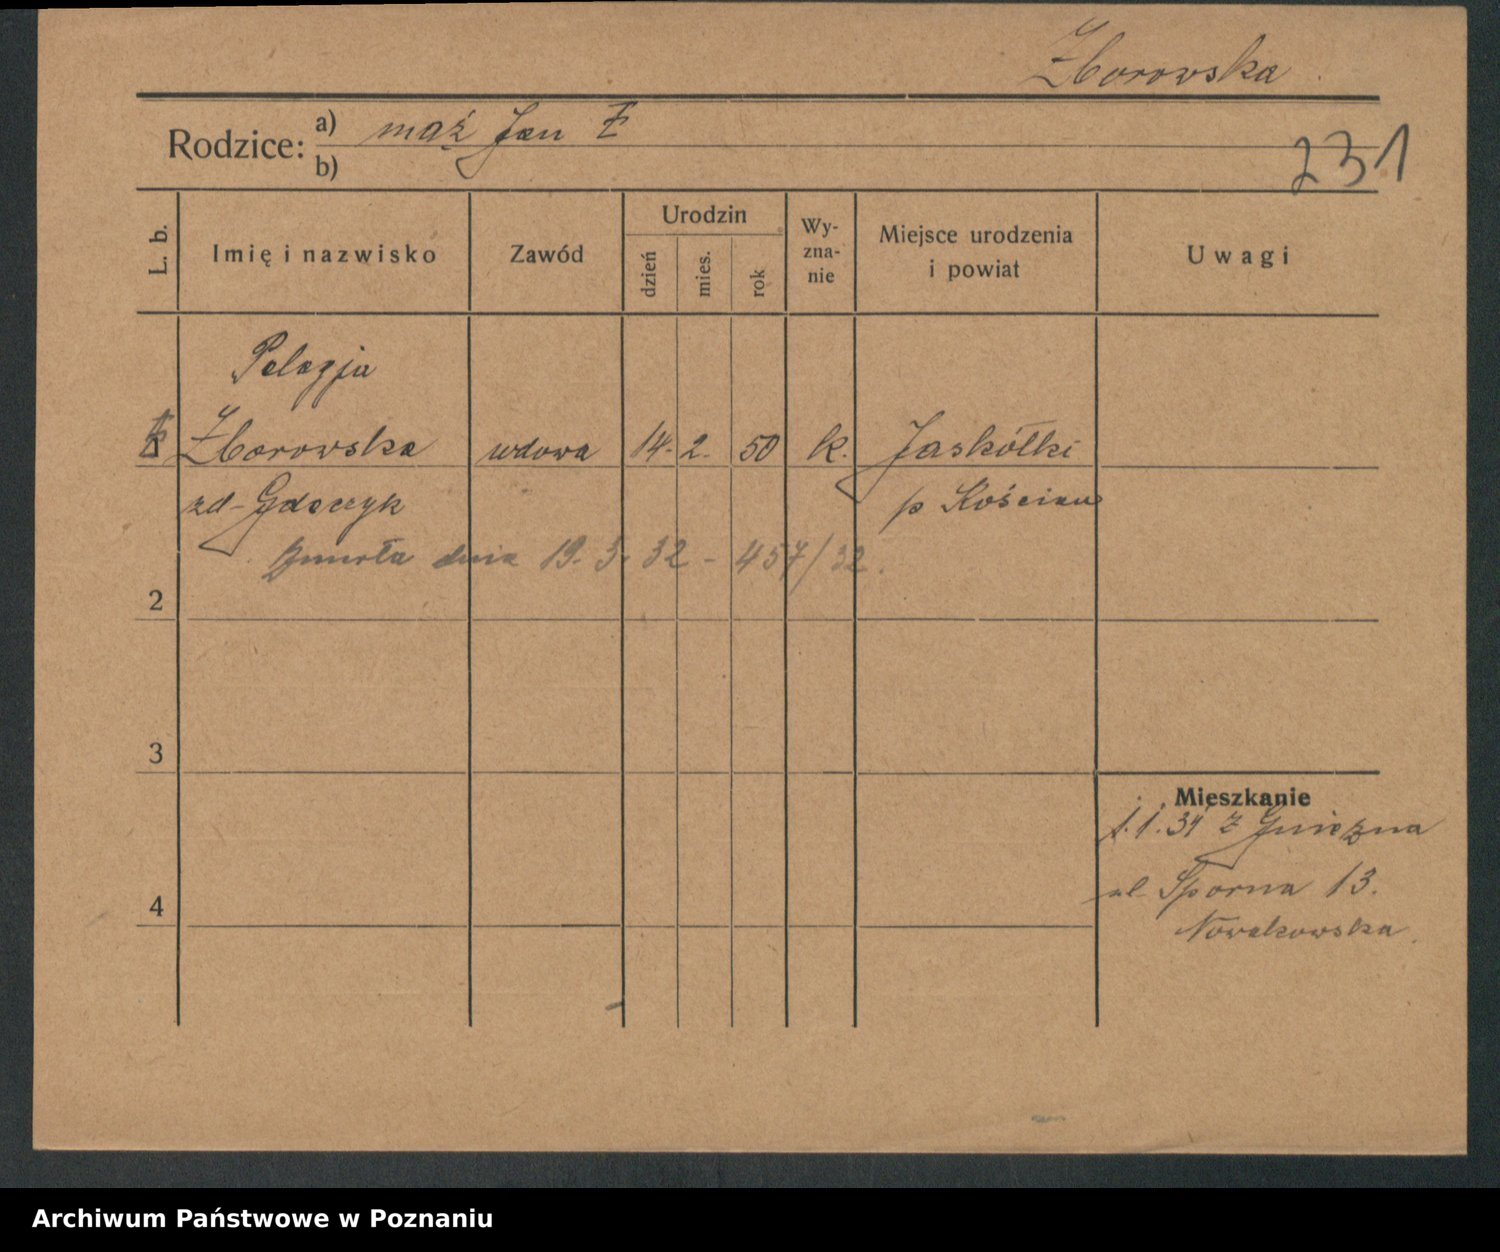 Zborowska
Rodzice: a) mąż Jan Z
b)
231
L. b.
Imię i nazwisko
Zawód
Urodzin
dzień
mies.
rok
Wy-
zna-
nie
Miejsce urodzenia
i powiat
Uwagi
Pelagja
Zborowska wdowa 14. 2. 50 k. Jaskółki
zd- Gdeczyk p Kościan
Zmarła dnia 19. 3. 32 - 457/32.
2
3
Mieszkanie
1.1.31 z Gniezna
ul Sporna 13.
4
Nowakowska
Archiwum Państwowe w Poznaniu